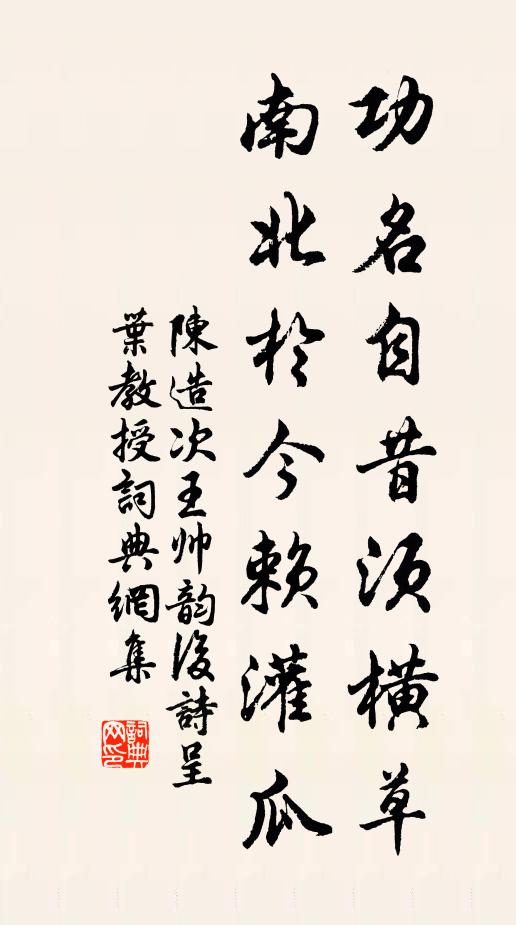 功名自昔須橫草
南北於今賴灌瓜
陳造次王帅韵後詩呈
葉教授詞典網集
詞典
网印